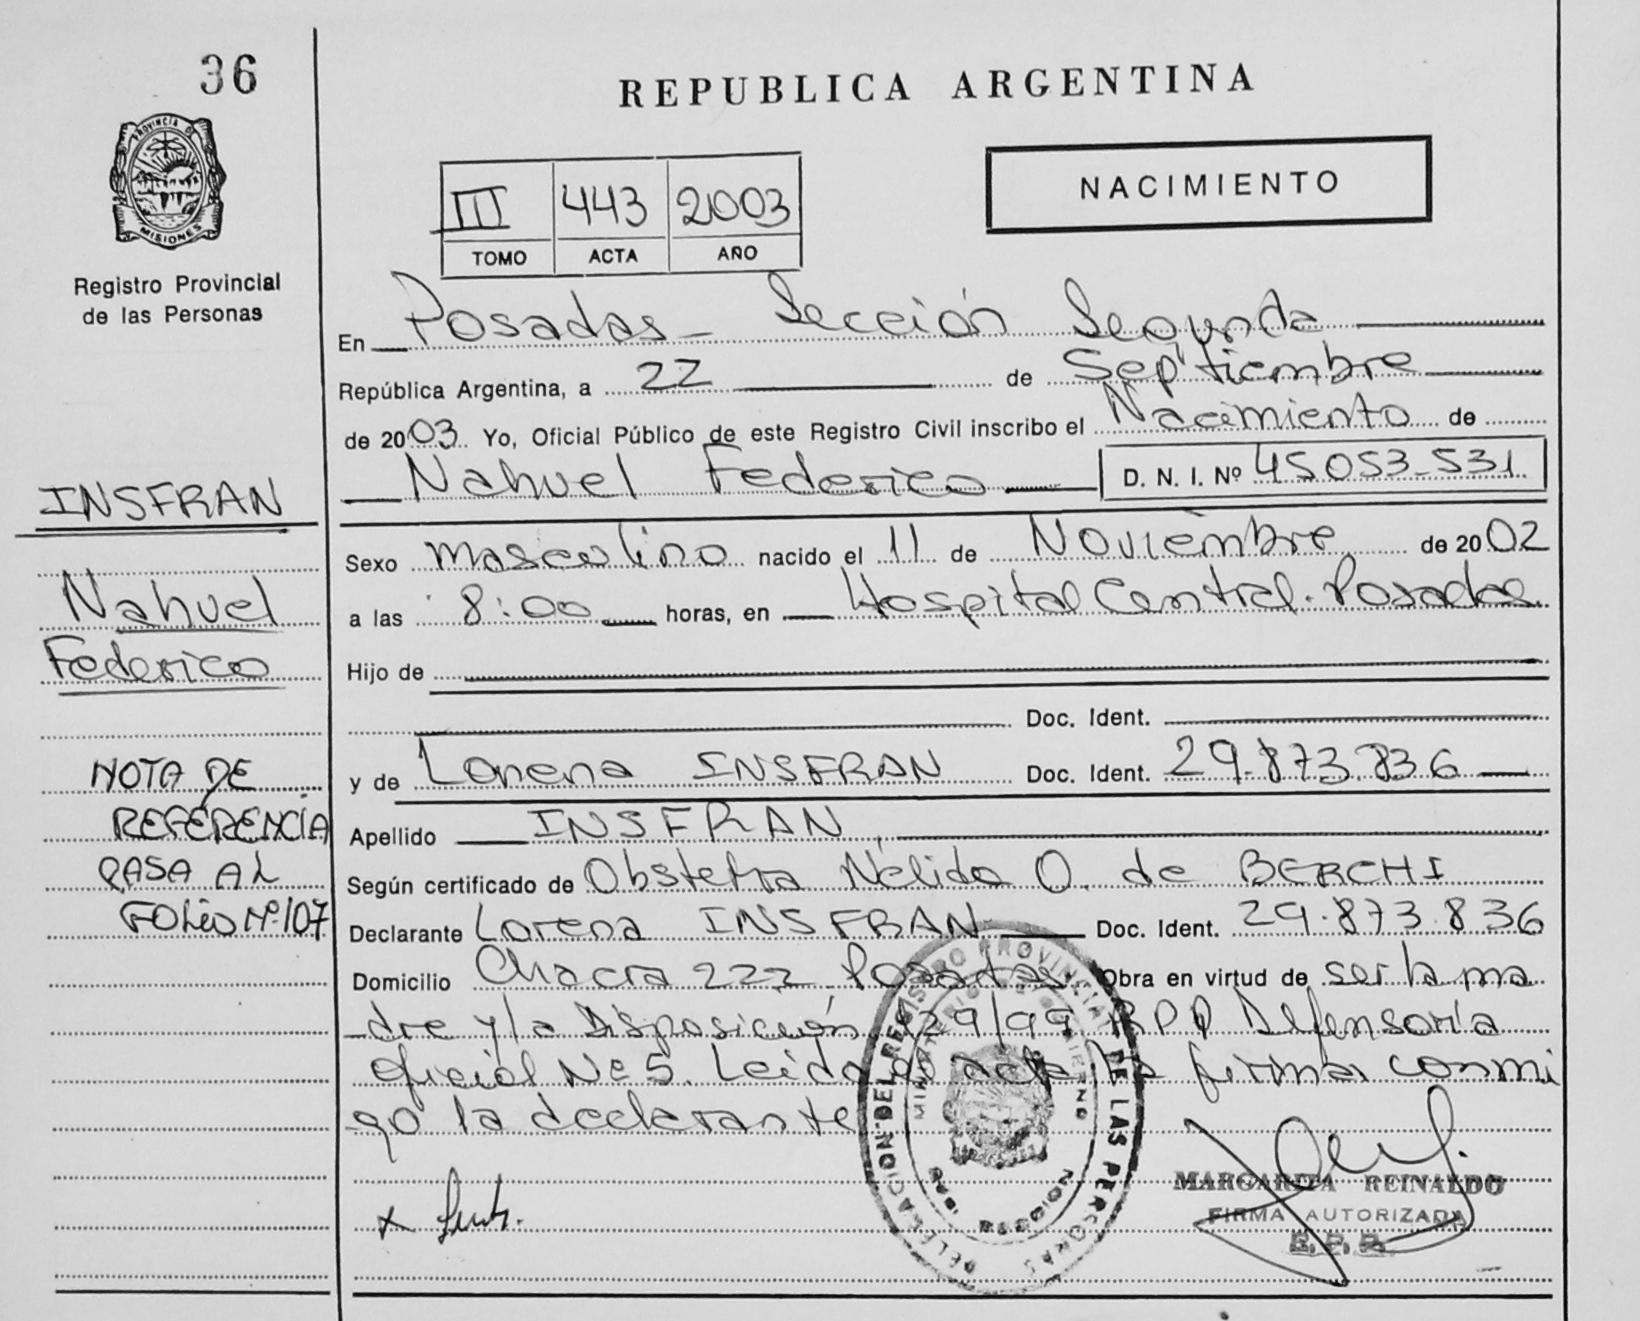 36
REPUBLICA ARGENTINA
PROVINCIA D
MISIONES
Registro Provincial
de las Personas
NACIMIENTO
III 443 2003
TOMO ACTA AÑO
En Posadas - Sección Segunda
República Argentina, a 22 de Septiembre
de 2003 Yo, Oficial Público de este Registro Civil inscribo el Nacimiento de
Nahuel Federico D. N. I. Nº 45053-531
INSFRAN
Nahuel
Federico
Sexo masculino nacido el 11 de Noviembre de 2002
a las 8:00 horas, en Hospital Central. Posadas
Hijo de
Doc. Ident.
y de Lorena INSFRAN Doc. Ident. 29.873.836
NOTA DE
REFERENCIA
PASA AL
FOLIO Nº 107
Apellido INSFRAN
Según certificado de Obstetra Nélida O. de BERCHI
Declarante Lorena INSFRAN Doc. Ident. 29.873.836
Domicilio Chacra 222 Posadas Obra en virtud de ser la ma
dre y/a Disposición 929/99 RPP Defensoría
Oficial Nº 5. Leída el acta la firma conmi
go la declarante
DELEGACION DEL REGISTRO PROVINCIAL DE LAS PERSONAS
MINISTERIO DE GOBIERNO
MARGARITA REINALDO
FIRMA AUTORIZADA
R. P. P.